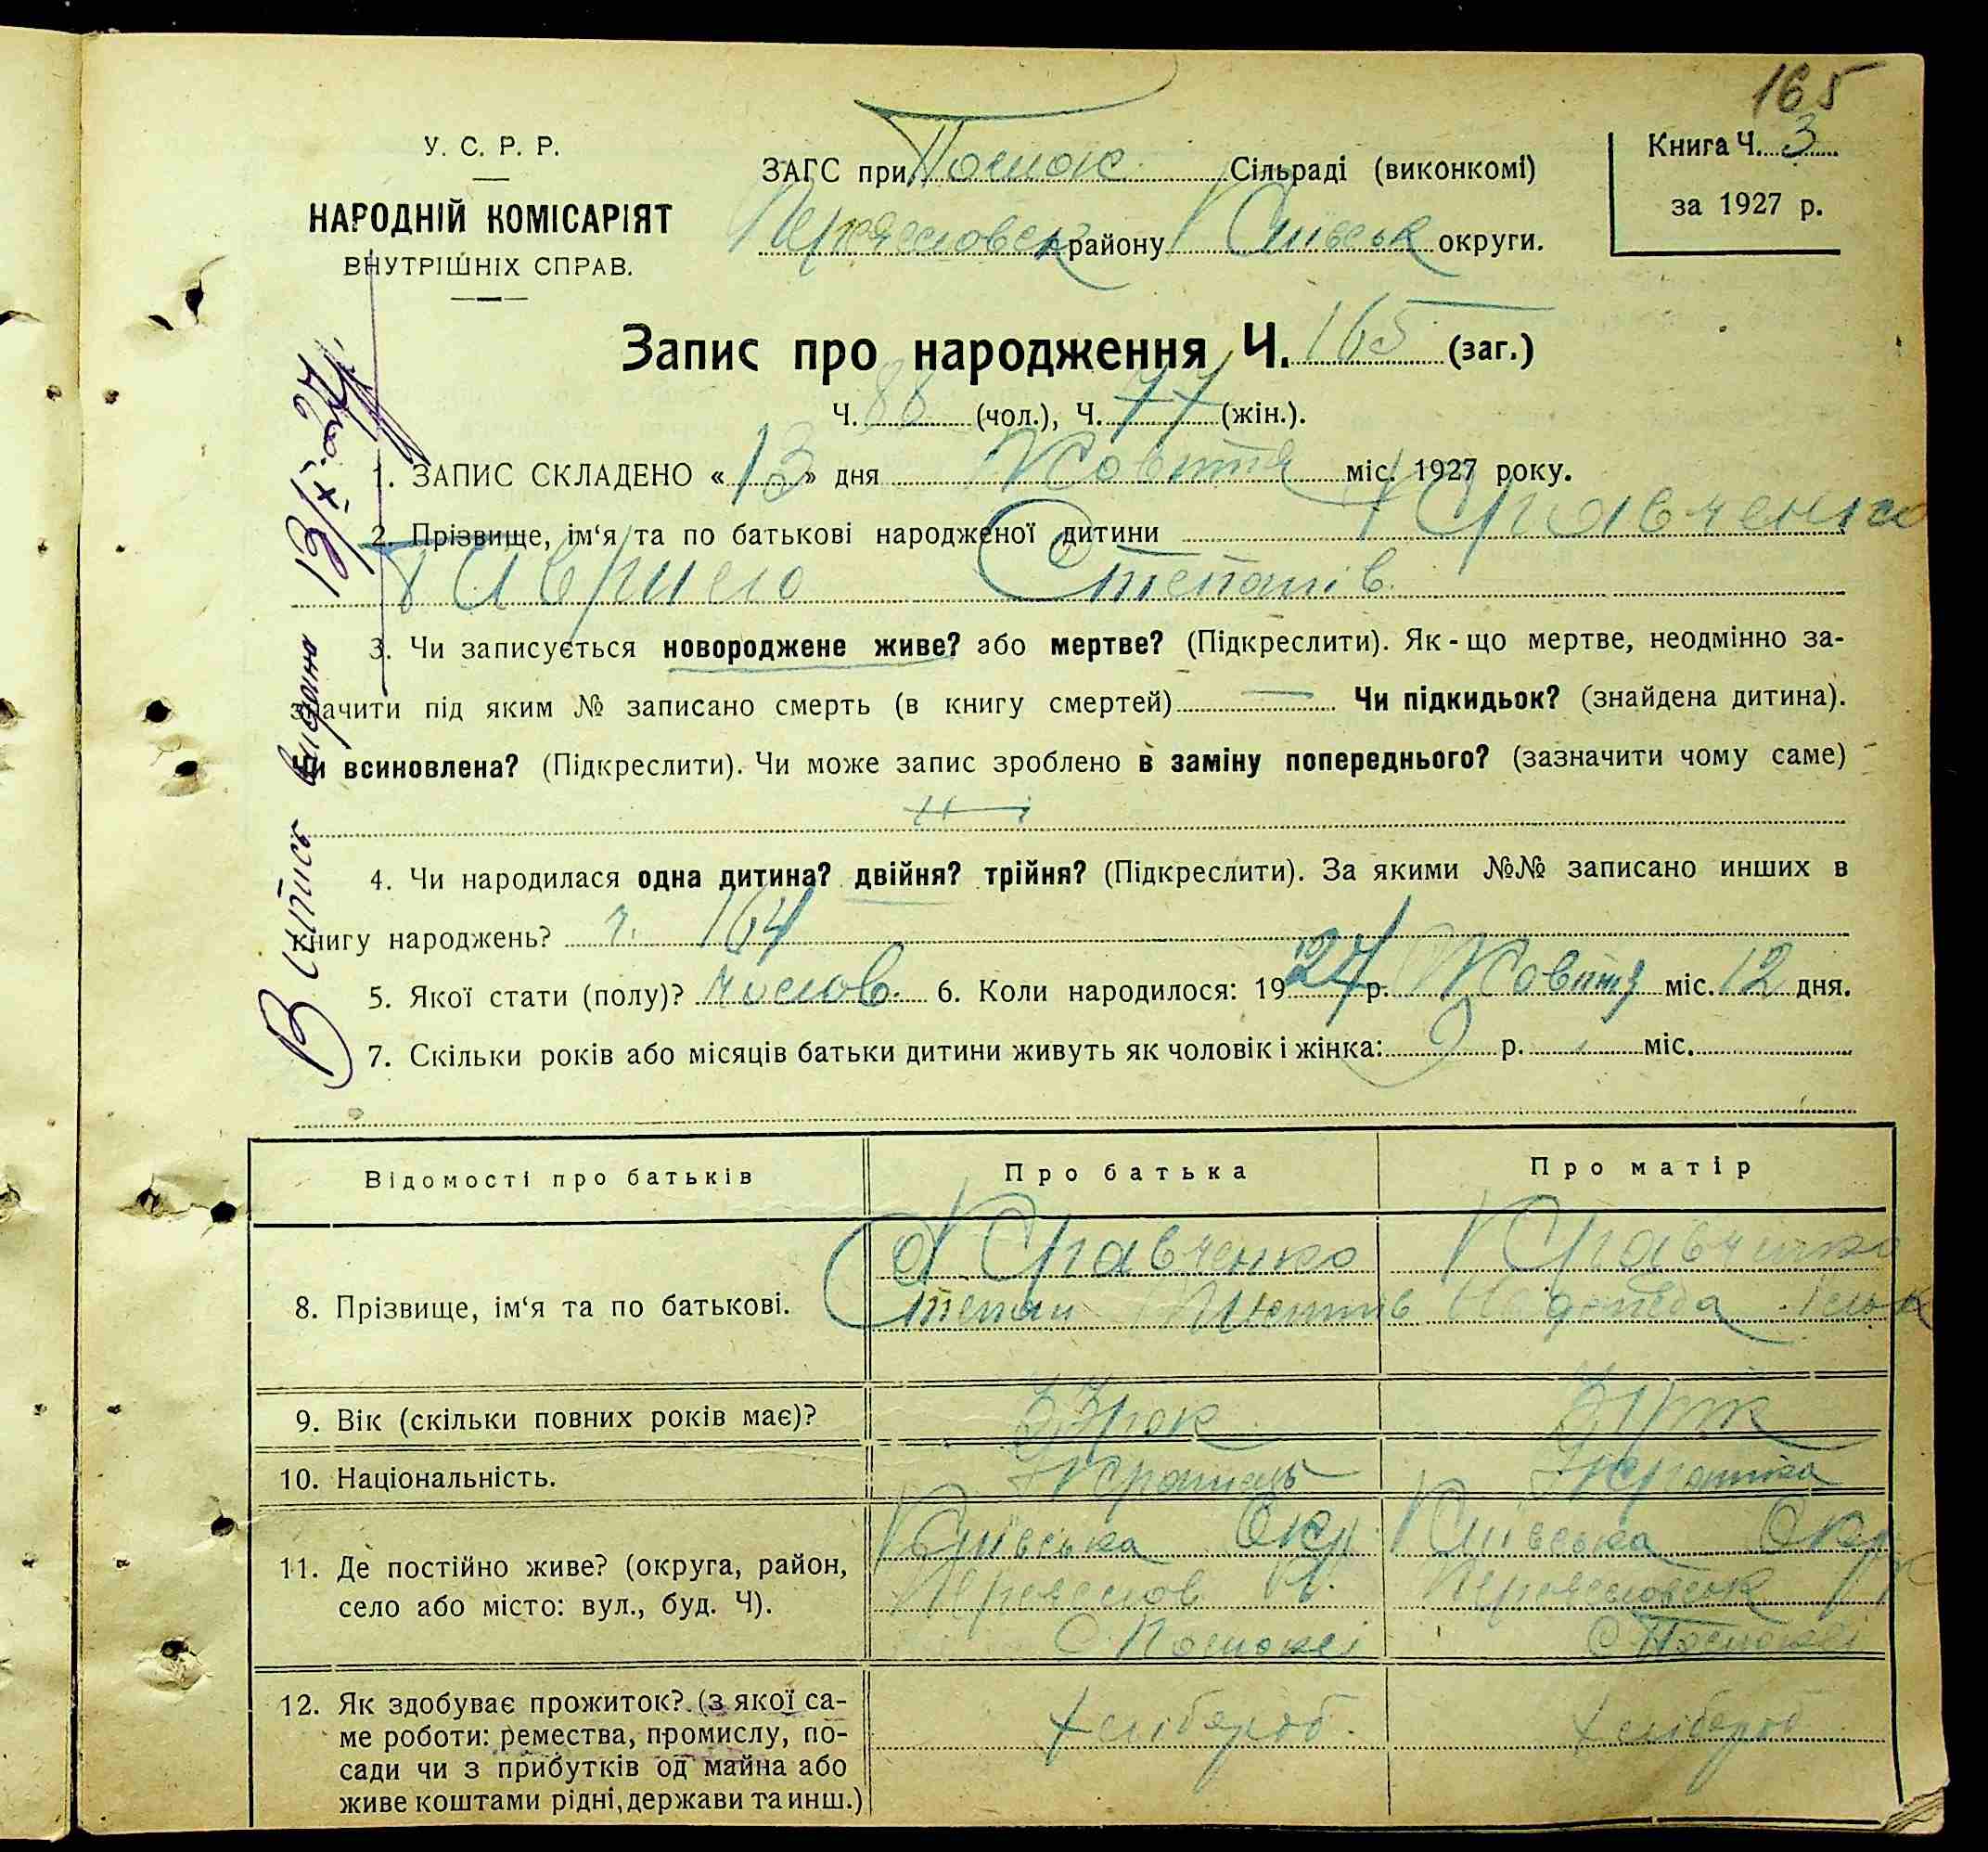 165
У. С. Р. Р.
НАРОДНІЙ КОМІСАРІЯТ
ВНУТРІШНІХ СПРАВ.
ЗАГС при Сільраді (виконкомі)
району Київськ округи.
Книга Ч. 3
за 1927 р.
Запис про народження Ч. 165 (заг.)
Ч. 88 (чол.), Ч. 77 (жін.).
1. ЗАПИС СКЛАДЕНО « 13 » дня Жовтня міс. 1927 року.
2. Прізвище, ім‘я та по батькові народженої дитини Кравченко
Гаврило Степанів
3. Чи записується новороджене живе? або мертве? (Підкреслити). Як-що мертве, неодмінно за-
значити під яким № записано смерть (в книгу смертей) — Чи підкидьок? (знайдена дитина).
Чи всиновлена? (Підкреслити). Чи може запис зроблено в заміну попереднього? (зазначити чому саме)
Ні
4. Чи народилася одна дитина? двійня? трійня? (Підкреслити). За якими №№ записано инших в
книгу народжень? ч. 164
5. Якої стати (полу)? чолов. 6. Коли народилося: 1927 р. Жовтня міс. 12 дня.
7. Скільки років або місяців батьки дитини живуть як чоловік і жінка: 9 р. міс.
Випись видано 13/X-27
Відомості про батьків Про батька Про матір
8. Прізвище, ім‘я та по батькові.
Кравченко Кравченко
Степан
9. Вік (скільки повних років має)? 33 рок
10. Національність. Українець Українка
11. Де постійно живе? (округа, район,
село або місто: вул., буд. Ч).
Київська Окр. Київська Окр
12. Як здобуває прожиток? (з якої са-
ме роботи: ремества, промислу, по-
сади чи з прибутків од майна або
живе коштами рідні, держави та инш.)
Хлібороб. Хлібороб